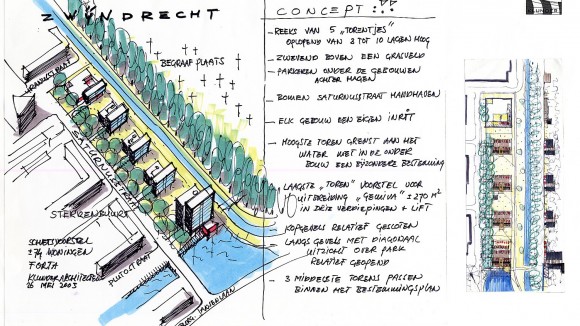 ZWIJNDRECHT
BEGRAAFPLAATS
URANUSSTRAAT
SATURNUSSTRAAT
STERRENBUURT
PLUTOSTRAAT
SCHETSVOORSTEL
± 74 WONINGEN
FORTA
KLUNDER ARCHITECTEN
16 MEI 2003
CONCEPT:
- REEKS VAN 5 "TORENTJES"
OPLOPEND VAN 3 TOT 10 LAGEN HOOG
- ZWEVEND BOVEN EEN GRASVELD
- PARKEREN ONDER DE GEBOUWEN
ACHTER HAGEN
- BOMEN SATURNUSSTRAAT HANDHAVEN
- ELK GEBOUW EEN EIGEN INRIT
- HOOGSTE TOREN GRENST AAN HET
WATER MET IN DE ONDER
BOUW EEN BIJZONDERE BESTEMMING
- LAAGSTE "TOREN" VOORSTEL VOOR
UITBREIDING "GEMIVA" ± 270 M²
IN DRIE VERDIEPINGEN + LIFT
- KOPGEVELS RELATIEF GESLOTEN
- LANGSGEVELS MET DIAGONAAL
UITZICHT OVER PARK
RELATIEF GEOPEND
- 3 MIDDELSTE TORENS PASSEN
BINNEN HET BESTEMMINGSPLAN